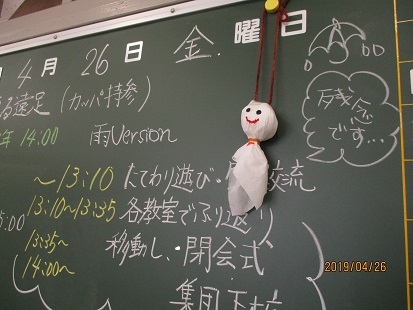 4月26日 金.曜日
る遠足(カッパ持参)
14.00 雨Version
残念
です…
〜13:10 たてわり遊び・
交流
13:10〜13:35 各教室でふり返り
13:35〜 移動し・閉会式
14:00〜
集団下校
2019/04/26